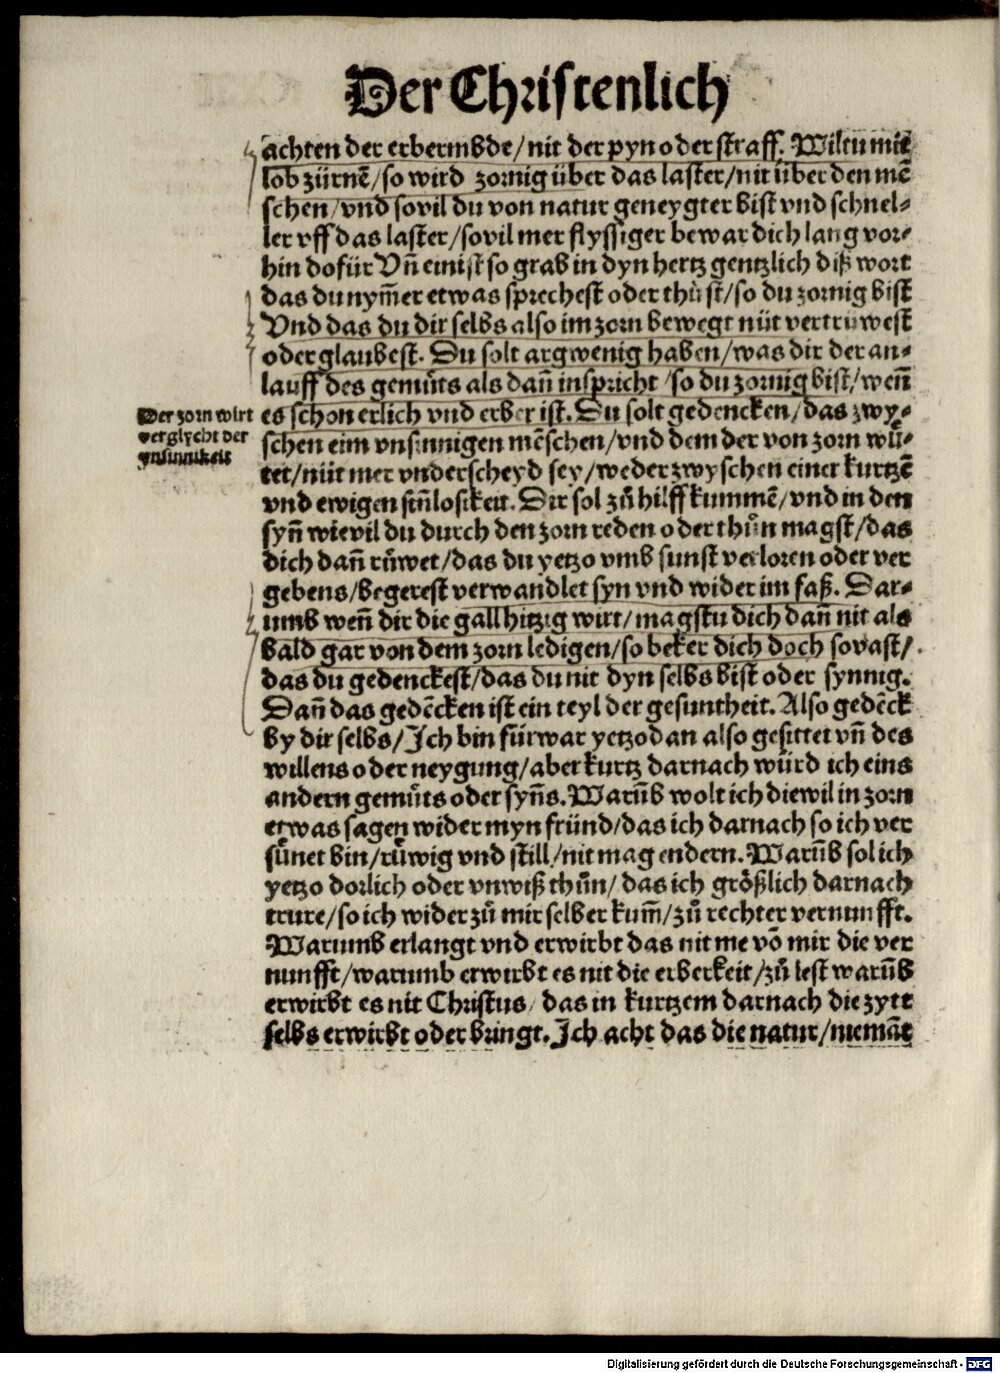 Der Christenlich
achten der erbermbde/nit der pyn oder straff. Wiltu mit
lob zürnē/so wird zornig über das laster/nit über den mē
schen/vnd sovil du von natur geneygter bist vnd schnel-
ler vff das laster/sovil mer flyssiger bewar dich lang vor-
hin dofür Vñ einist so grab in dyn hertz gentzlich diß wort
das du nym̄er etwas sprechest oder thůst/so du zornig bist
Vnd das du dir selbs also im zorn bewegt nüt vertruwest
oder glaubest. Du solt argwenig haben/was dir der an-
lauff des gemůts als dañ inspricht/so du zornig bist/weñ
es schon erlich vnd erber ist. Du solt gedencken/das zwy-
Der zorn wirt
verglycht der
vnsinnikeit
schen eim vnsinnigen mēschen/vnd dem der von zorn wů-
tet/nüt mer vnderscheyd sey/weder zwyschen einer kurtzē
vnd ewigen siñlosikeit. Dir sol zů hilff kummē/vnd in den
syñ wievil du durch den zorn reden oder thůn magst/das
dich dañ rüwet/das du yetzo vmb sunst verloren oder ver
gebens/begerest verwandlet syn vnd wider im faß. Dar-
umb weñ dir die gall hitzig wirt/magstu dich dañ nit als
bald gar von dem zorn ledigen/so beker dich doch sovast/
das du gedenckest/das du nit dyn selbs bist oder synnig.
Dañ das gedēcken ist ein teyl der gesuntheit. Also gedēck
by dir selbs/Ich bin fürwar yetzodan also gesittet vñ des
willens oder neygung/aber kurtz darnach würd ich eins
andern gemůts oder syñs. Warūb wolt ich diewil in zorn
etwas sagen wider myn fründ/das ich darnach so ich ver
sůnet bin/růwig vnd still/nit mag endern. Warūb sol ich
yetzo dorlich oder vnwiß thůn/das ich größlich darnach
trure/so ich wider zů mir selber kum̄/zů rechter vernunfft.
Warumb erlangt vnd erwirbt das nit me vō mir die ver
nunfft/warumb erwirbt es nit die erberkeit/zů lest warūb
erwirbt es nit Christus/das in kurtzem darnach die zytt
selbs erwirbt oder bringt. Ich acht das die natur/niemāt
Digitalisierung gefördert durch die Deutsche Forschungsgemeinschaft - DFG